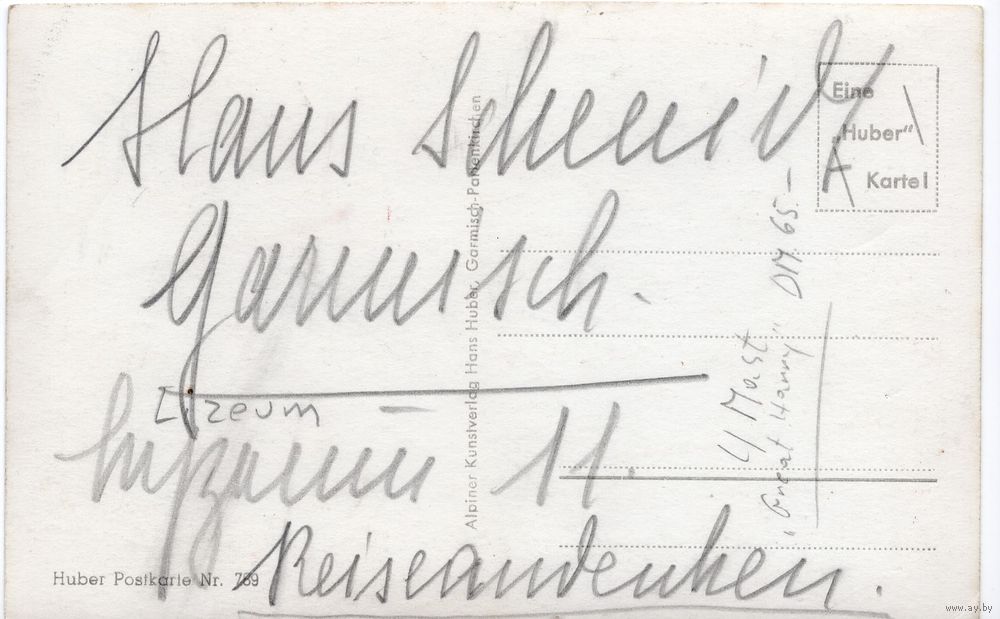 Hans Schmidt
Eine
„Huber"
Karte!
Garmisch.
Alpiner Kunstverlag Hans Huber, Garmisch-Partenkirchen
DM 65.-
4 Mast
„Great Harry"
11.
Huber Postkarte Nr. 789
Reiseandenken.
www.ay.by